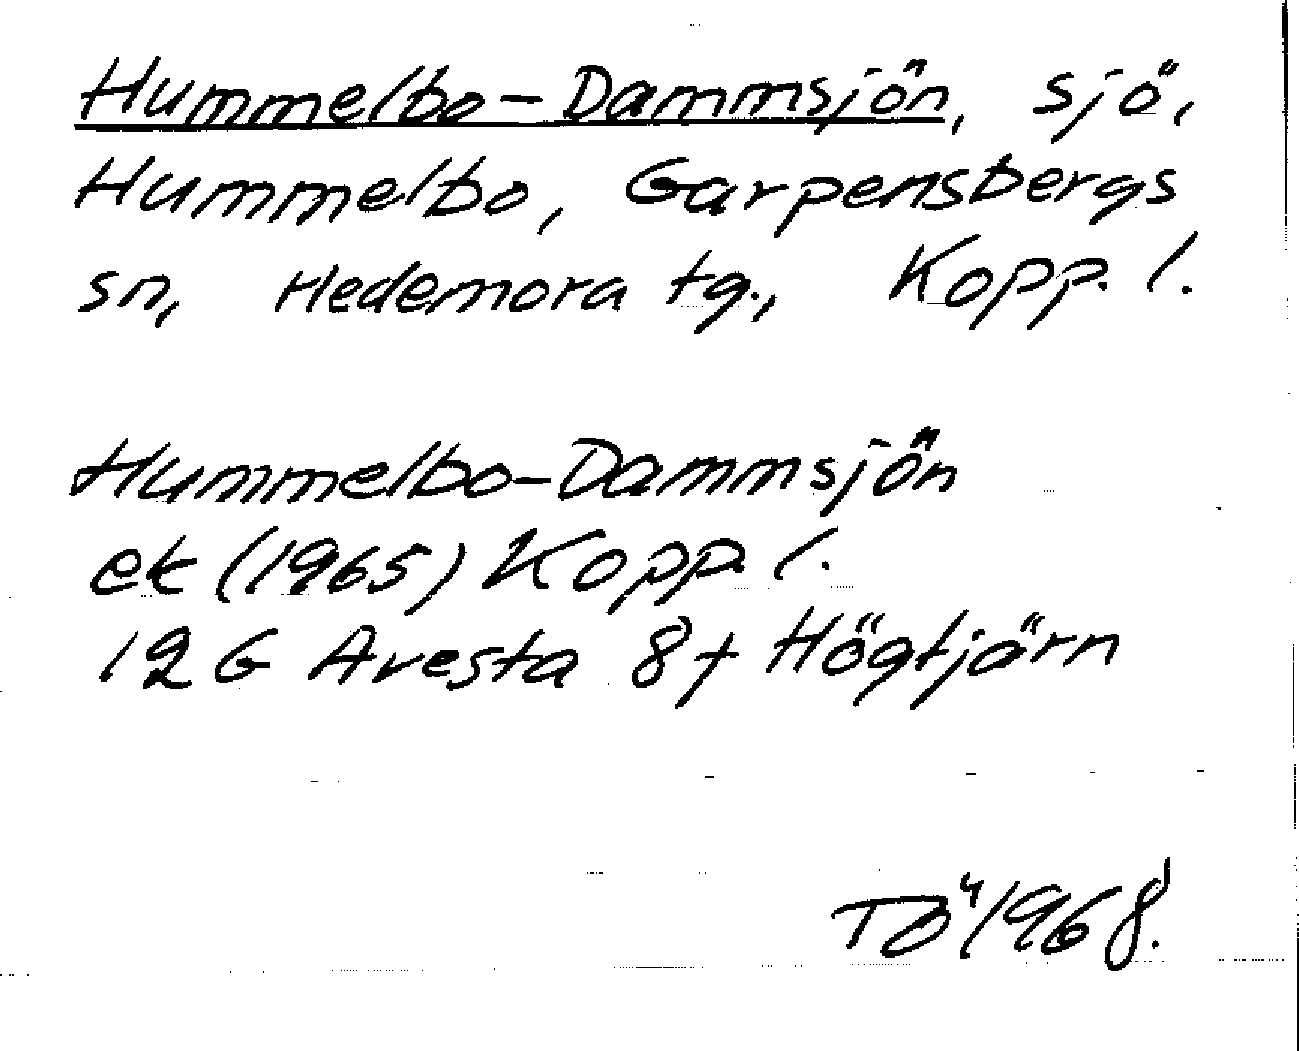 Hummelbo-Dammsjön, sjö,
Hummelbo, Garpensbergs
sn, Hedemora tg., Kopp. l.
Hummelbo-Dammsjön
ek (1965) Kopp. l.
12 G Avesta 8f Högtjärn
TÖ 1968.